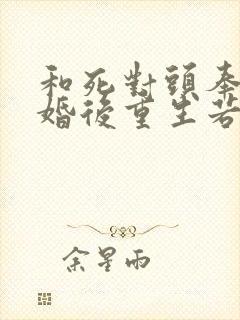 和死對頭奉
婚後重生若
余星雨